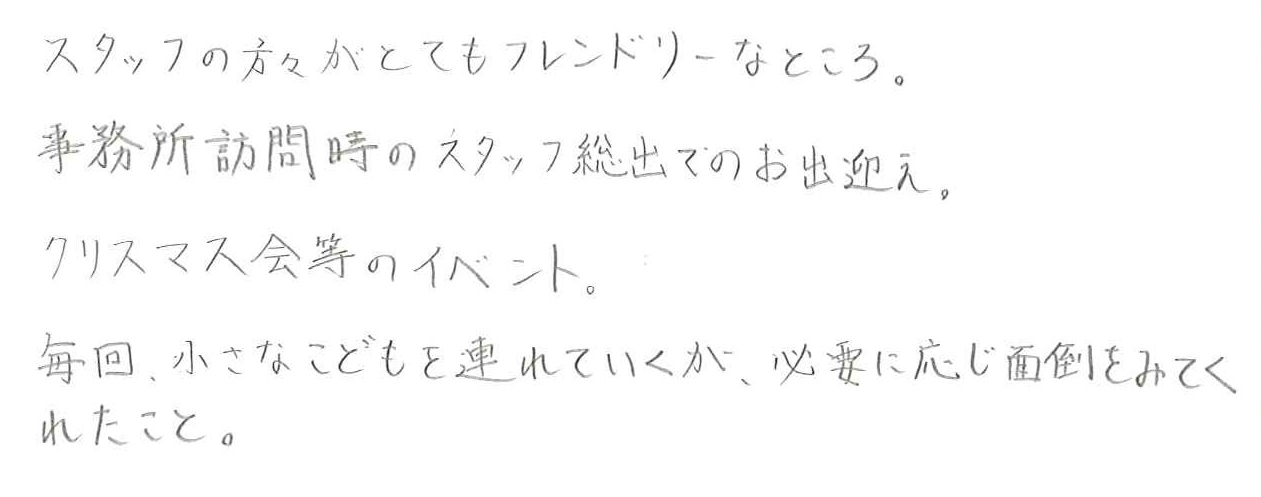 スタッフの方々がとてもフレンドリーなところ。
事務所訪問時のスタッフ総出でのお出迎え。
クリスマス会等のイベント。
毎回、小さなこどもを連れていくが、必要に応じ面倒をみてく
れたこと。